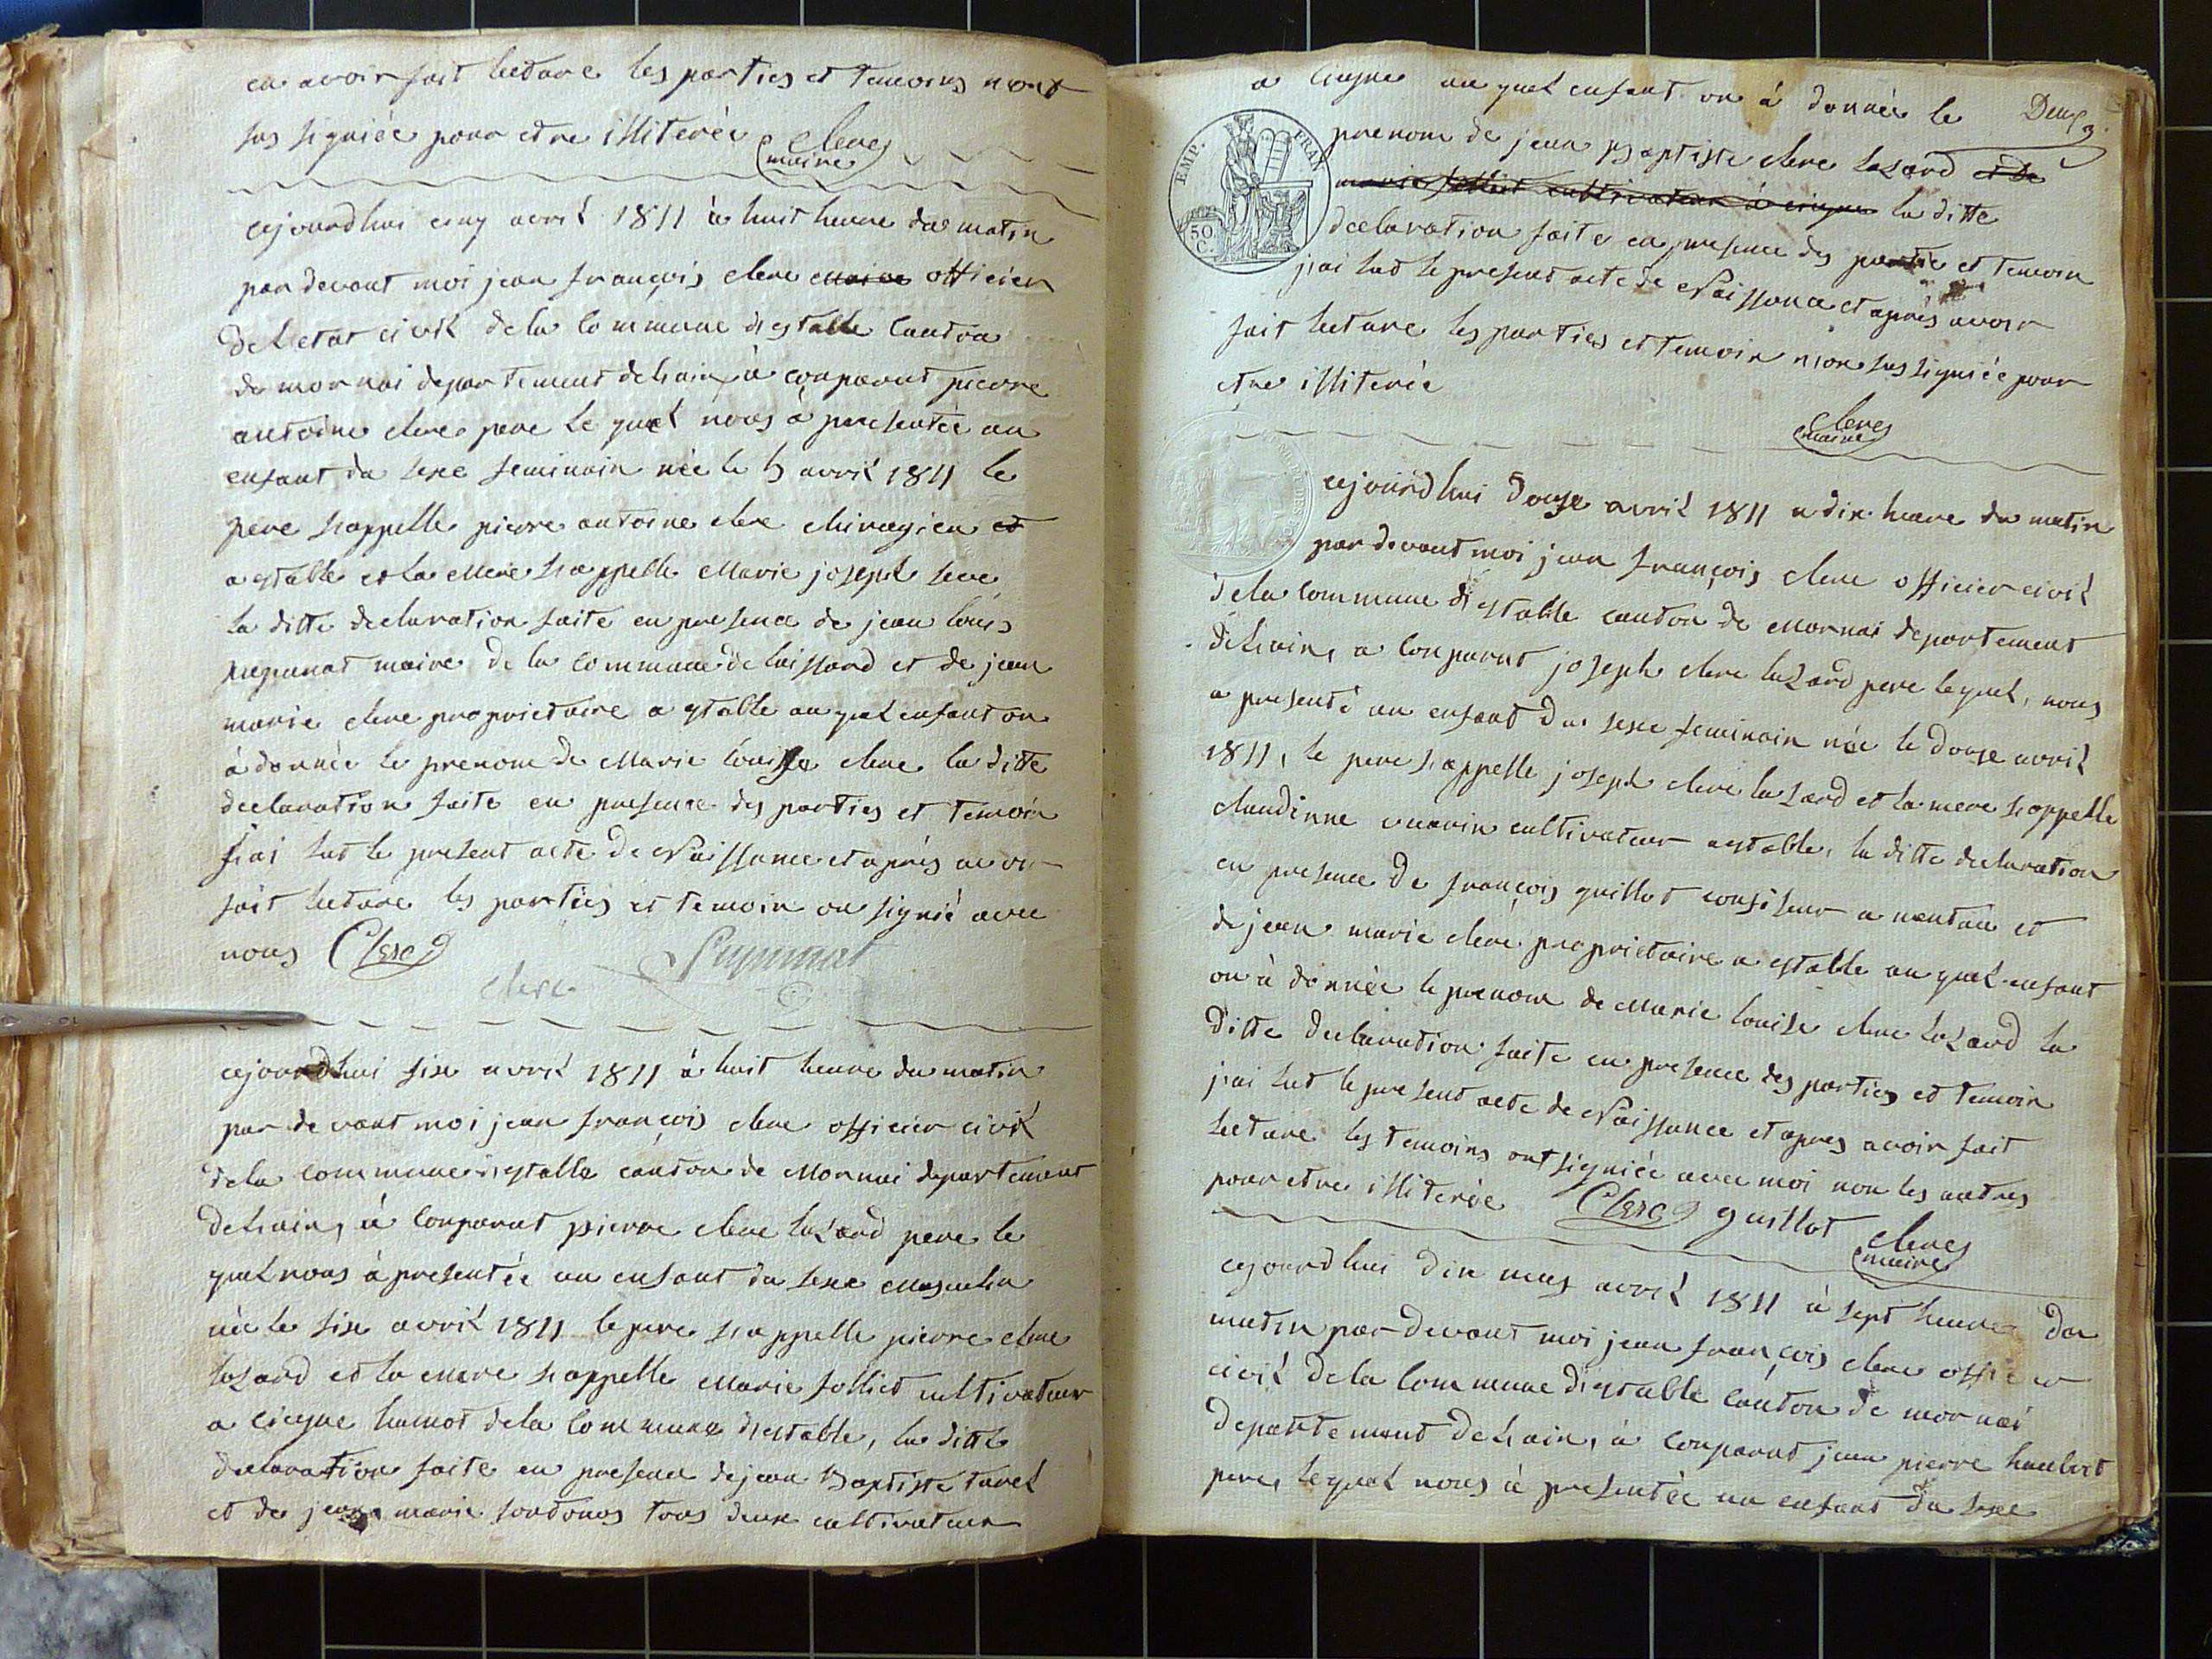 en avoir fait lecture les parties et temoins nont
sus signiée pour etre illiterée Clerc
maire
cejourdhui cinq avril 1811 à huit heure du matin
par devant moi jean françois clerc maire officier
de letat civil dela commune destable canton
de mornai departement delain, à conparut pierre
antoine clerc pere le quel nous à presentée un
enfant du sexe feminain née le 5 avril 1811 le
pere sappelle pierre antoine clerc chirugien et
a estable et la mere sappelle Marie joseph
la ditte declaration faite en presence de jean louis
maire de la commune de laissard et de jean
marie clerc proprietaire a estable au quel enfant on
à donnée le prenom de Marie louisse clerc la ditte
declaration faite en presence des parties et temoin
jai lut le present acte de Naissance et après avoir
fait lecture les parties et temoin on signié avec
nous Clerc
clerc
cejourdhui sixe avril 1811 à huit heure du matin
par devant moi jean françois clerc officier civil
dela commune destable canton de Mornai departement
delain, à conparut pierre clerc lazard pere le
quel nous à presentée un enfant du sexe Masculin
née le sixe avril 1811 le pere sappelle pierre clerc
lazard et la mere sappelle Marie solliet cultivateur
a ciegne hamot dela commune destable, la ditte
declaration faite en presence de jean Baptiste turel
et de jean marie tous deux cultivateur
a ciegne au quel enfant on à donnée le
Deux
3.
prenom de jean Baptiste clerc lazard et de
marie solliet cultivateur à ciegne la ditte
declaration faite en presence des partie et temoin
jai lut le present acte de Naissance et après avoir
fait lecture les parties et temoin non sus signiée pour
etre illiterée
Clerc
maire
EMP. FRAN
50
C.
cejourdhui douze avril 1811 a dix heure du matin
par devant moi jean françois clerc officier civil
dela commune destable canton de Mornai departement
delain, a conparut joseph clerc lazard pere lequel, nous
a presenté un enfant du sexe feminain née le douze avril
1811, le pere sappelle joseph clerc lazard et la mere sappelle
claudinne vuarin cultivateur a estable, la ditte declaration
en presence de françois guillot confiseur a nantua et
de jean marie clerc proprietaire a estable au quel enfant
on à donnée le prenom de Marie louise clerc lazard la
ditte declaration faite en presence des parties et temoin
jai lut le present acte de Naissance et apres avoir fait
lecture les temoins ont signiée avec moi non les autres
pour etre illiterée Clerc guillot Clerc
maire
cejourdhui dix neuf avril 1811 à sept heure du
matin par devant moi jean françois clerc officier
civil dela commune destable canton de mornai
departement delain, à conparut jean pierre humbert
pere, lequel nous à presentée un enfant du sexe